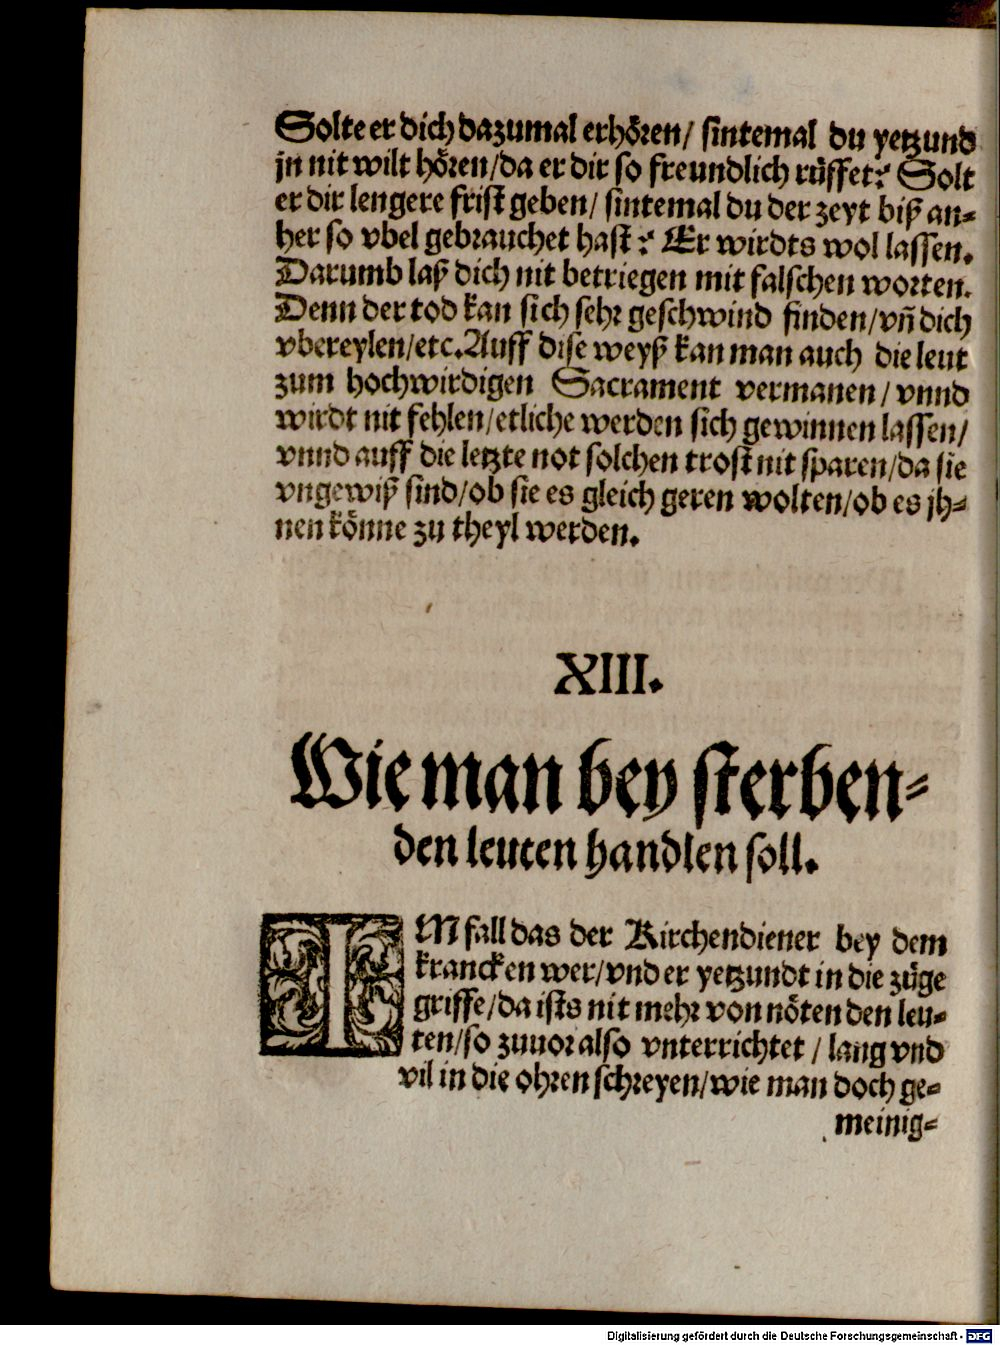 Solte er dich dazumal erhören/ sintemal du yetzund
jn nit wilt hören/da er dir so freundlich rüffet? Solt
er dir lengere frist geben/ sintemal du der zeyt biß an-
her so vbel gebrauchet hast? Er wirdts wol lassen.
Darumb laß dich nit betriegen mit falschen worten.
Denn der tod kan sich sehr geschwind finden/vñ dich
vbereylen/etc. Auff dise weyß kan man auch die leut
zum hochwirdigen Sacrament vermanen/ vnnd
wirdt nit fehlen/etliche werden sich gewinnen lassen/
vnnd auff die letzte not solchen trost nit sparen/da sie
vngewiß sind/ob sie es gleich geren wolten/ob es jh-
nen könne zu theyl werden.
XIII.
Wie man bey sterben-
den leuten handlen soll.
IM fall das der Kirchendiener bey dem
krancken wer/vnd er yetzundt in die züge
griffe/da ists nit mehr von nöten den leu-
ten/so zuuor also vnterrichtet / lang vnd
vil in die ohren schreyen/wie man doch ge-
meinig-
Digitalisierung gefördert durch die Deutsche Forschungsgemeinschaft - DFG